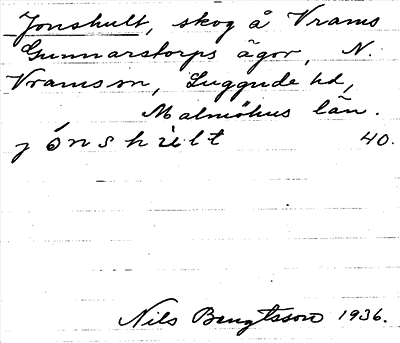 Jonshult, skog å Vrams
Gunnarstorps ägor, N.
Vrams sn, Luggude hd,
Malmöhus län.
jónshùlt 40.
Nils Bengtsson 1936.